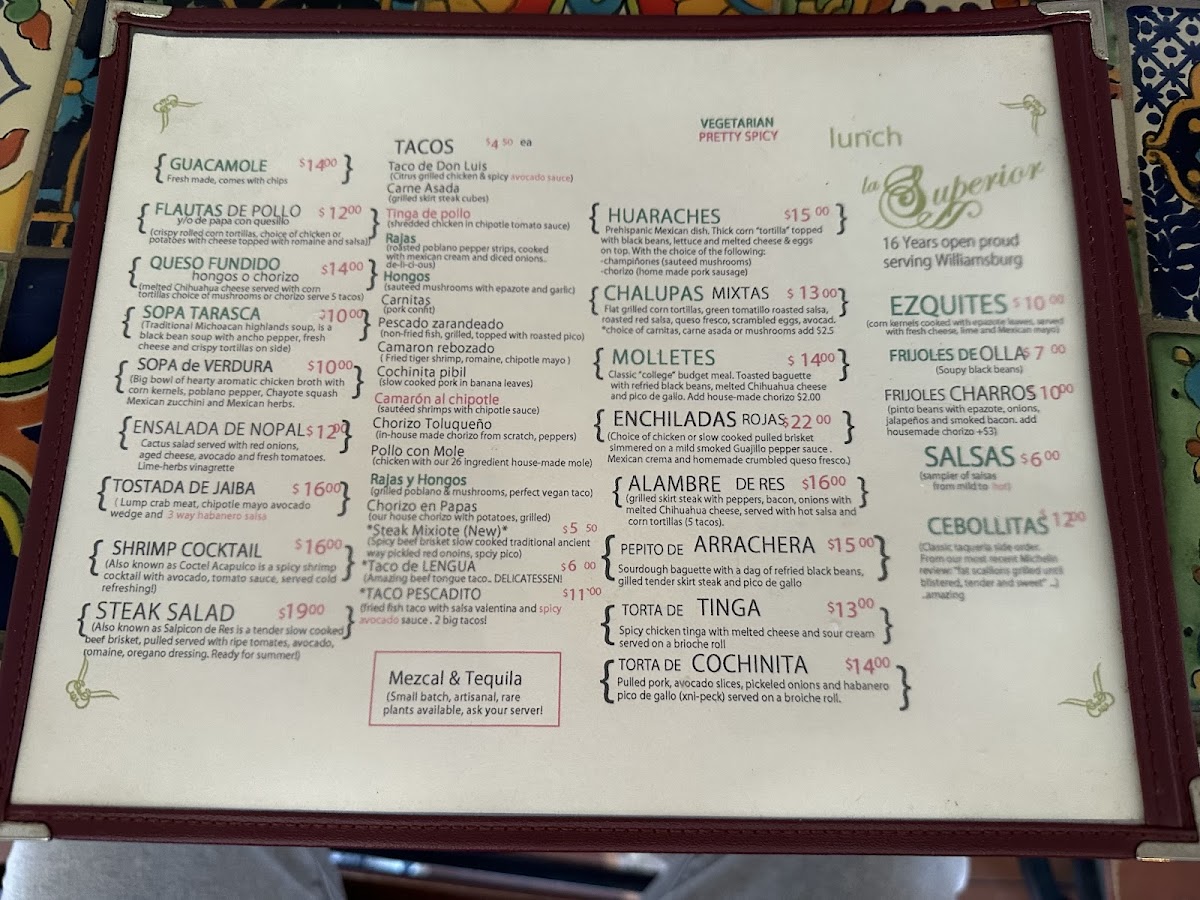 VEGETARIAN
PRETTY SPICY
lunch
la Superior
16 Years open proud
serving Williamsburg
GUACAMOLE $14 00
Fresh made, comes with chips
FLAUTAS DE POLLO $12 00
y/o de papa con quesillo
(crispy rolled corn tortillas, choice of chicken or
potatoes with cheese topped with romaine and salsa)
QUESO FUNDIDO $14 00
hongos o chorizo
(melted Chihuahua cheese served with corn
tortillas choice of mushrooms or chorizo serve 5 tacos)
SOPA TARASCA $10 00
(Traditional Michoacan highlands soup, is a
black bean soup with ancho pepper, fresh
cheese and crispy tortillas on side)
SOPA de VERDURA $10 00
(Big bowl of hearty aromatic chicken broth with
corn kernels, poblano pepper, Chayote squash
Mexican zucchini and Mexican herbs.
ENSALADA DE NOPAL $12 00
Cactus salad served with red onions,
aged cheese, avocado and fresh tomatoes.
Lime-herbs vinagrette
TOSTADA DE JAIBA $16 00
( Lump crab meat, chipotle mayo avocado
wedge and 3 way habanero salsa
SHRIMP COCKTAIL $16 00
(Also known as Coctel Acapulco is a spicy shrimp
cocktail with avocado, tomato sauce, served cold
refreshing!)
STEAK SALAD $19 00
(Also known as Salpicon de Res is a tender slow cooked
beef brisket, pulled served with ripe tomatoes, avocado,
romaine, oregano dressing. Ready for summer!)
TACOS $4 50 ea
Taco de Don Luis
(Citrus grilled chicken & spicy avocado sauce)
Carne Asada
(grilled skirt steak cubes)
Tinga de pollo
(shredded chicken in chipotle tomato sauce)
Rajas
(roasted poblano pepper strips, cooked
with mexican cream and diced onions.
de-li-ci-ous)
Hongos
(sauteed mushrooms with epazote and garlic)
Carnitas
(pork confit)
Pescado zarandeado
(non-fried fish, grilled, topped with roasted pico)
Camaron rebozado
( Fried tiger shrimp, romaine, chipotle mayo )
Cochinita pibil
(slow cooked pork in banana leaves)
Camarón al chipotle
(sautéed shrimps with chipotle sauce)
Chorizo Toluqueño
(in-house made chorizo from scratch, peppers)
Pollo con Mole
(chicken with our 26 ingredient house-made mole)
Rajas y Hongos
(grilled poblano & mushrooms, perfect vegan taco)
Chorizo en Papas
(our house chorizo with potatoes, grilled)
*Steak Mixiote (New)* $5 50
(Spicy beef brisket slow cooked traditional ancient
way pickled red onoins, spcly pico)
*Taco de LENGUA $6 00
(Amazing beef tongue taco.. DELICATESSEN!
*TACO PESCADITO $11 00
(fried fish taco with salsa valentina and spicy
avocado sauce . 2 big tacos!
Mezcal & Tequila
(Small batch, artisanal, rare
plants available, ask your server!
HUARACHES $15 00
Prehispanic Mexican dish. Thick corn "tortilla" topped
with black beans, lettuce and melted cheese & eggs
on top. With the choice of the following:
-champiñones (sauteed mushrooms)
-chorizo (home made pork sausage)
CHALUPAS MIXTAS $ 13 00
Flat grilled corn tortillas, green tomatillo roasted salsa,
roasted red salsa, queso fresco, scrambled eggs, avocad.
*choice of carnitas, carne asada or mushrooms add $2.5
MOLLETES $ 14 00
Classic "college" budget meal. Toasted baguette
with refried black beans, melted Chihuahua cheese
and pico de gallo. Add house-made chorizo $2.00
ENCHILADAS ROJAS $22 00
(Choice of chicken or slow cooked pulled brisket
simmered on a mild smoked Guajillo pepper sauce .
Mexican crema and homemade crumbled queso fresco.)
ALAMBRE DE RES $16 00
(grilled skirt steak with peppers, bacon, onions with
melted Chihuahua cheese, served with hot salsa and
corn tortillas (5 tacos).
PEPITO DE ARRACHERA $15 00
Sourdough baguette with a dag of refried black beans,
gilled tender skirt steak and pico de gallo
TORTA DE TINGA $13 00
Spicy chicken tinga with melted cheese and sour cream
served on a brioche roll
TORTA DE COCHINITA $14 00
Pulled pork, avocado slices, pickeled onions and habanero
pico de gallo (xni-peck) served on a broiche roll.
EZQUITES $10 00
(corn kernels cooked with epazote leaves, served
with fresh cheese, lime and Mexican mayo)
FRIJOLES DE OLLA $7 00
(Soupy black beans)
FRIJOLES CHARROS $10 00
(pinto beans with epazote, onions,
jalapeños and smoked bacon. add
housemade chorizo +$3)
SALSAS $6 00
(sampler of salsas
from mild to hot)
CEBOLLITAS $12 00
(Classic taqueria side order.
From our most recent Michelin
review: "fat scallions grilled until
blistered, tender and sweet" ..)
..amazing